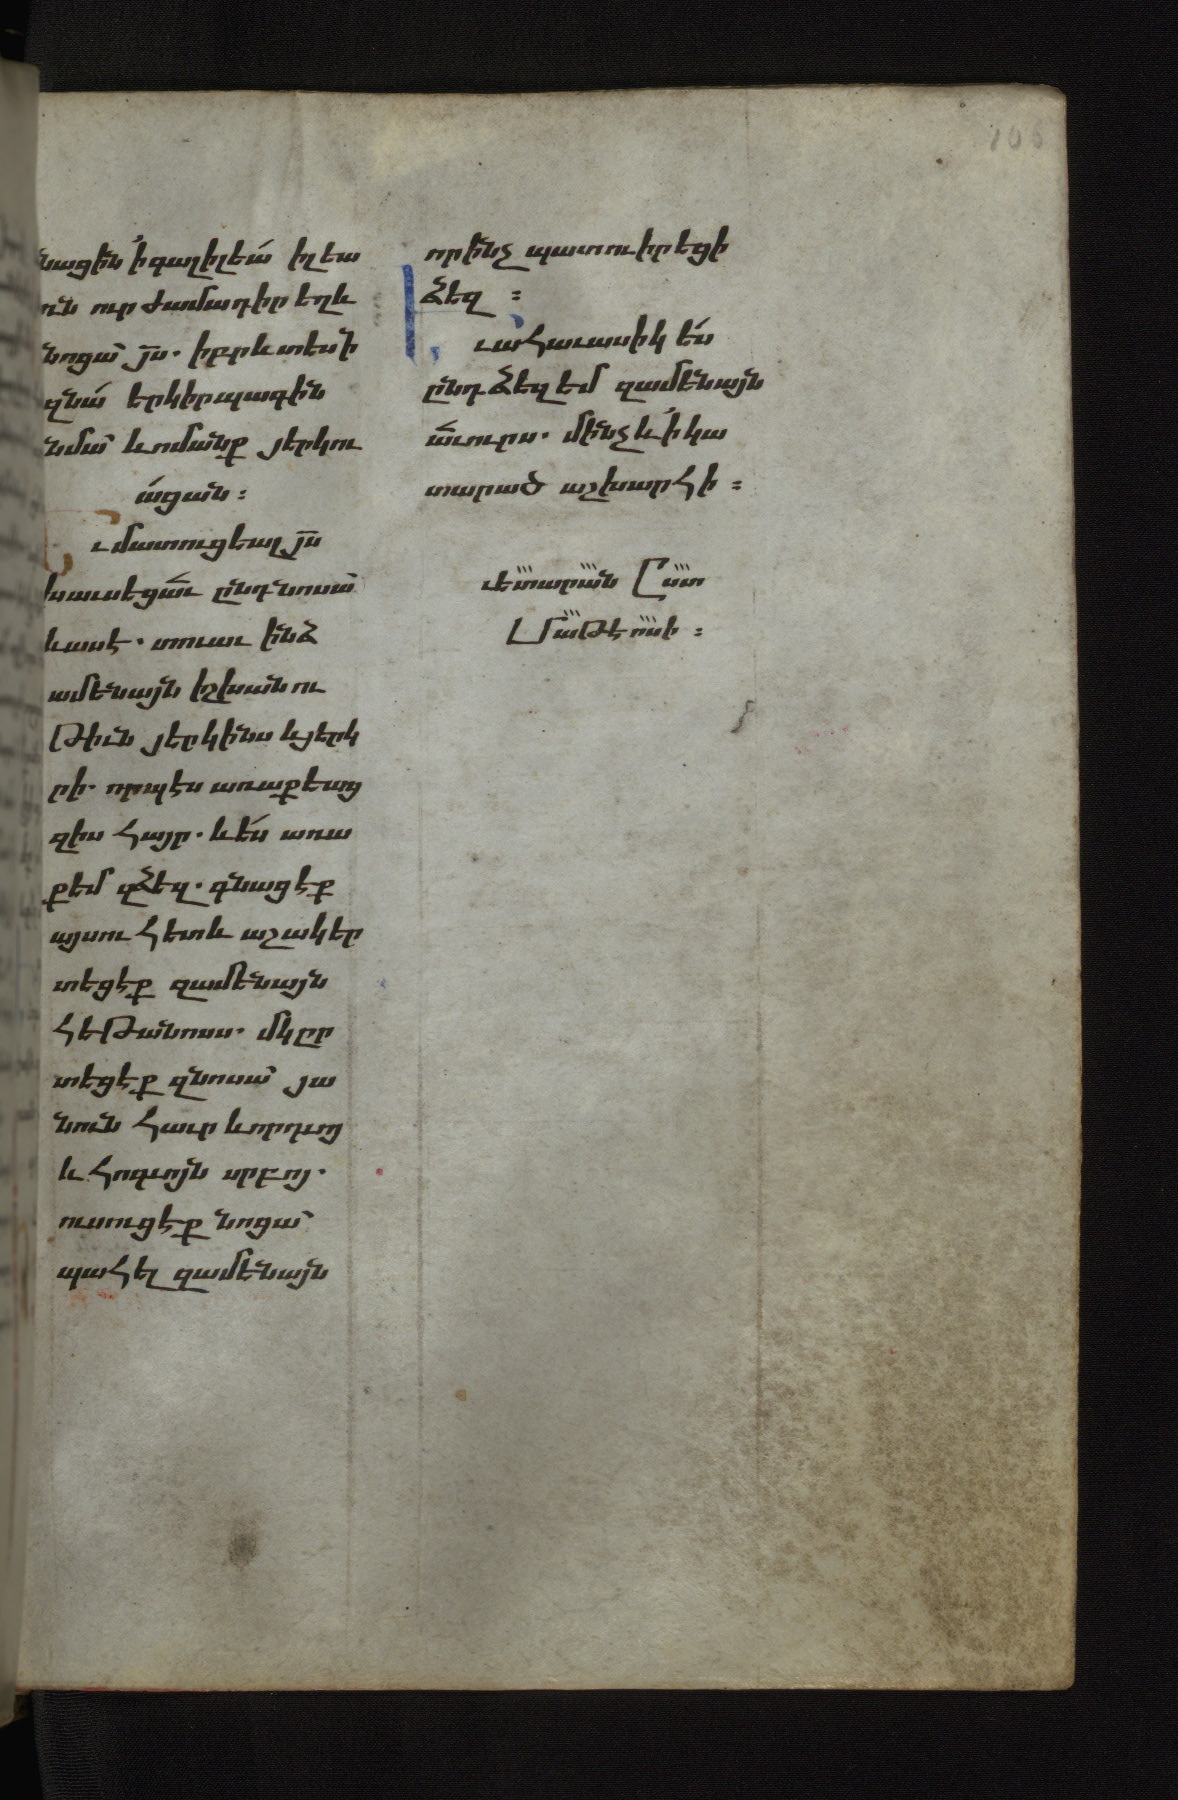 նացին՛ ի գալիլեա՛ ի լեա
ռն ուր ժամադիր եղև
նոցա՝ յս̄. իբրև տեսի
զնա՛ երկիրպագին
նմա՝ և ոմանք յերկու
ացան։
Եւ մատուցեալ յս̄
խաւսեցաւ ընդ նոսա՝
և ասէ. տուաւ ինձ
ամենայն իշխանու
թիւն յերկինս և յերկ
րի. որպէս առաքեաց
զիս հայր. և ես առա
քեմ զձեզ. գնացէք
այսուհետև աշակեր
տեցէք զամենայն
հեթանոսս. մկըր
տեցէք զնոսա՝ յա
նուն հաւր և որդւոյ
և հոգւոյն սրբոյ.
ուսուցէք նոցա՝
պահել զամենայն
որինչ պատուիրեցի
ձեզ ։
Եւ ահաւասիկ ես
ընդ ձեզ եմ զամենայն
աւուրս. մինչև ի կա
տարած աշխարհի ։
ւետարան Ըստ
Մաթէոսի ։
106